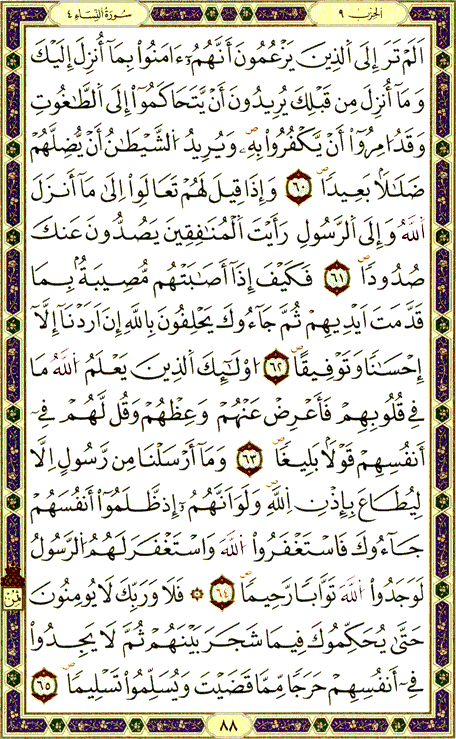 الحزب ٩
سورة النساء ٤
اَلَمْ تَرَ إِلَى اَلذِينَ يَزْعُمُونَ أَنَّهُمُۥٓ ءَامَنُواْ بِمَآ أُنزِلَ إِلَيْكَ
وَمَآ أُنزِلَ مِن قَبْلِكَ يُرِيدُونَ أَنْ يَّتَحَاكَمُوٓاْ إِلَى اَلطَّٰغُوتِ
وَقَدُ ا۟مِرُوٓاْ أَنْ يَّكْفُرُواْ بِهِۦ وَيُرِيدُ اُلشَّيْطَٰنُ أَنْ يُّضِلَّهُمْ
ضَلَٰلاَۢ بَعِيداً ٦٠ وَإِذَا قِيلَ لَهُمْ تَعَالَوِاْ اِلَىٰ مَآ أَنزَلَ
اَللَّهُ وَإِلَى اَلرَّسُولِ رَأَيْتَ اَلْمُنَٰفِقِينَ يَصُدُّونَ عَنكَ
صُدُوداً ٦١ فَكَيْفَ إِذَآ أَصَٰبَتْهُم مُّصِيبَةُۢ بِمَا
قَدَّمَتَ اَيْدِيهِمْ ثُمَّ جَآءُوكَ يَحْلِفُونَ بِاللَّهِ إِنَ اَرَدْنَآ إِلَّآ
إِحْسَٰناً وَتَوْفِيقاً ٦٢ ا۟وْلَٰٓئِكَ اَلذِينَ يَعْلَمُ اُللَّهُ مَا
فِے قُلُوبِهِمْ فَأَعْرِضْ عَنْهُمْ وَعِظْهُمْ وَقُل لَّهُمْ فِےٓ
أَنفُسِهِمْ قَوْلاَۢ بَلِيغاً ٦٣ وَمَآ أَرْسَلْنَا مِن رَّسُولٍ اِلَّا
لِيُطَاعَ بِإِذْنِ اِللَّهِ وَلَوَ اَنَّهُمُۥٓ إِذ ظَّلَمُوٓاْ أَنفُسَهُمْ
جَآءُوكَ فَاسْتَغْفَرُواْ اُللَّهَ وَاسْتَغْفَرَ لَهُمُ اُلرَّسُولُ
لَوَجَدُواْ اُللَّهَ تَوَّاباً رَّحِيماً ٦٤ ۞ فَلَا وَرَبِّكَ لَا يُومِنُونَ
ثمن
حَتَّىٰ يُحَكِّمُوكَ فِيمَا شَجَرَ بَيْنَهُمْ ثُمَّ لَا يَجِدُواْ
فِےٓ أَنفُسِهِمْ حَرَجاً مِّمَّا قَضَيْتَ وَيُسَلِّمُواْ تَسْلِيماً ٦٥
٨٨